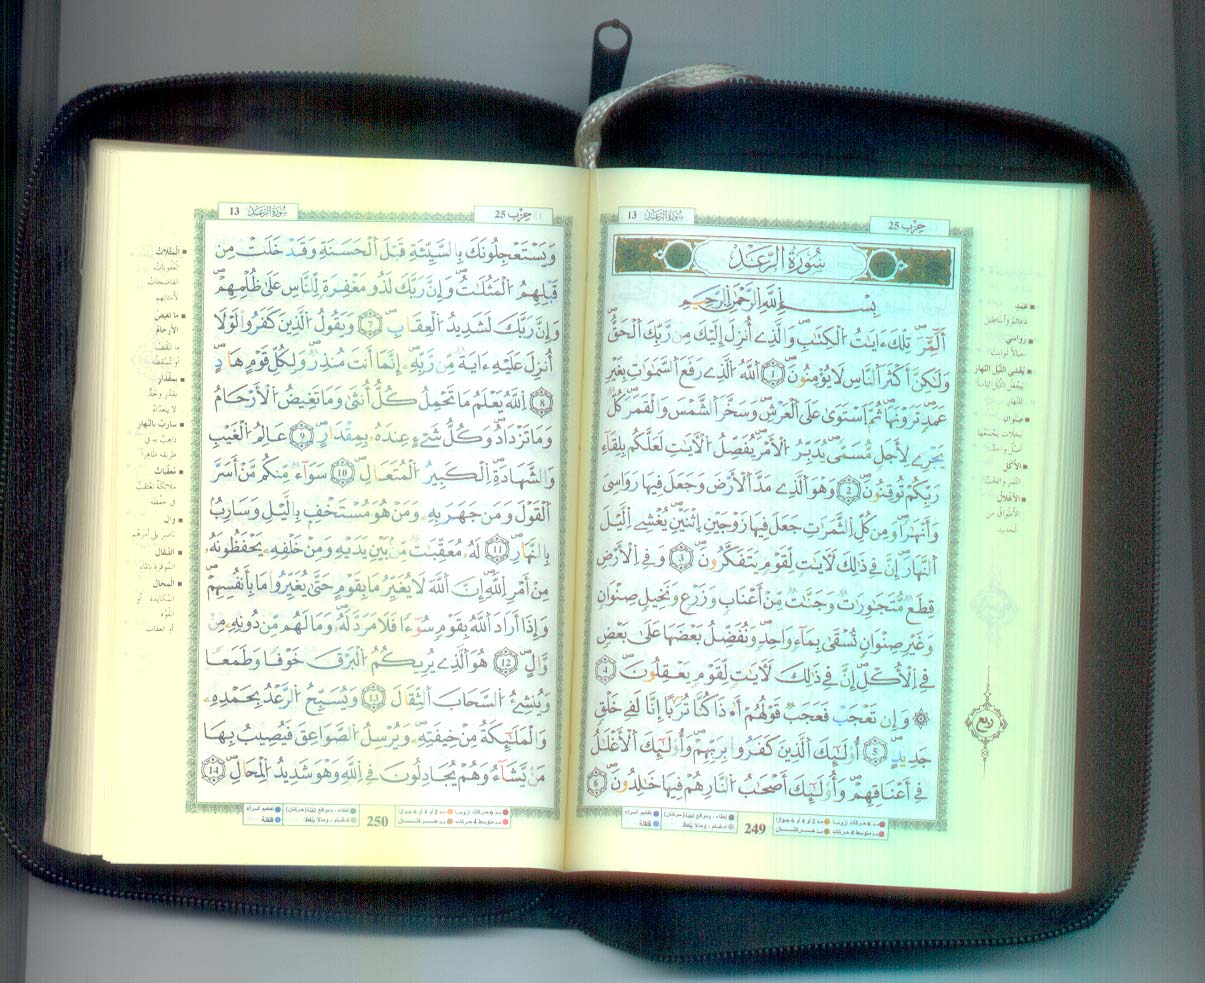 سُورَةُ الرَّعْدِ 13
حِزْب 25
سُورَةُ الرَّعْدِ
بِسْمِ اللَّهِ الرَّحْمَٰنِ الرَّحِيمِ
أَلَٓمِّٓرۖ تِلْكَ ءَايَٰتُ اُ۬لْكِتَٰبِۖ وَالذِےٓ أُنزِلَ إِلَيْكَ مِن رَّبِّكَ اَ۬لْحَقُّۖ
وَلَٰكِنَّ أَكْثَرَ اَ۬لنَّاسِ لَا يُؤْمِنُونَۖ 1 اَ۬للَّهُ اُ۬لذِے رَفَعَ اَ۬لسَّمَٰوَٰتِ بِغَيْرِ
عَمَدٖ تَرَوْنَهَاۖ ثُمَّ اَ۪سْتَوَىٰ عَلَى اَ۬لْعَرْشِۖ وَسَخَّرَ اَ۬لشَّمْسَ وَالْقَمَرَۖ كُلّٞ
يَجْرِے لِأَجَلٖ مُّسَمّيٗۖ يُدَبِّرُ اُ۬لْأَمْرَۖ يُفَصِّلُ اُ۬لْأٓيَٰتِ لَعَلَّكُم بِلِقَآءِ
رَبِّكُمْ تُوقِنُونَۖ 2 وَهُوَ اَ۬لذِے مَدَّ اَ۬لْأَرْضَ وَجَعَلَ فِيهَا رَوَٰسِيَ
وَأَنْهَٰراٗۖ وَمِن كُلِّ اِ۬لثَّمَرَٰتِ جَعَلَ فِيهَا زَوْجَيْنِ اِ۪ثْنَيْنِۖ يُغْشِے اِ۬ليْلَ
اَ۬لنَّهَارَۖ إِنَّ فِے ذَٰلِكَ لَأٓيَٰتٖ لِّقَوْمٖ يَتَفَكَّرُونَۖ 3 وَفِے اِ۬لْأَرْضِ
قِطَعٞ مُّتَجَٰوِرَٰتٞ وَجَنَّٰتٞ مِّنْ أَعْنَٰبٖ وَزَرْعٖ وَنَخِيلٖ صِنْوَانٖ
وَغَيْرِ صِنْوَانٖ تُسْقَىٰ بِمَآءٖ وَٰحِدٖۖ وَنُفَضِّلُ بَعْضَهَا عَلَىٰ بَعْضٖ
فِے اِ۬لْأُكْلِۖ إِنَّ فِے ذَٰلِكَ لَأٓيَٰتٖ لِّقَوْمٖ يَعْقِلُونَۖ 4
۞ وَإِن تَعْجَبْ فَعَجَبٞ قَوْلُهُمْ أَٰ۟ذَا كُنَّا تُرَٰباً إِنَّا لَفِے خَلْقٖ
جَدِيدٍۖ 5 اُوْلَٰٓئِكَ اَ۬لذِينَ كَفَرُواْ بِرَبِّهِمْۖ وَأُوْلَٰٓئِكَ اَ۬لْأَغْلَٰلُ
فِےٓ أَعْنَاقِهِمْۖ وَأُوْلَٰٓئِكَ أَصْحَٰبُ اُ۬لنّ۪ارِ هُمْ فِيهَا خَٰلِدُونَۖ 6
عمد
رواسي
يغشي الليل النهار
صنوان
الأكل
الأغلال
الأطواق من
الحديد
ربع
249
سُورَةُ الرَّعْدِ 13
حِزْب 25
وَيَسْتَعْجِلُونَكَ بِالسَّيِّئَةِ قَبْلَ اَ۬لْحَسَنَةِ وَقَدْ خَلَتْ مِن
قَبْلِهِمُ اُ۬لْمَثُلَٰتُۖ وَإِنَّ رَبَّكَ لَذُو مَغْفِرَةٖ لِّلنَّاسِ عَلَىٰ ظُلْمِهِمْۖ
وَإِنَّ رَبَّكَ لَشَدِيدُ اُ۬لْعِقَابِۖ 7 وَيَقُولُ اُ۬لذِينَ كَفَرُواْ لَوْلَآ
أُنزِلَ عَلَيْهِ ءَايَةٞ مِّن رَّبِّهِۦٓۖ إِنَّمَآ أَنتَ مُنذِرٞۖ وَلِكُلِّ قَوْمٍ هَادٍۖ
8 اِ۬للَّهُ يَعْلَمُ مَا تَحْمِلُ كُلُّ أُنثَىٰ وَمَا تَغِيضُ اُ۬لْأَرْحَامُ
وَمَا تَزْدَادُۖ وَكُلُّ شَےْءٍ عِندَهُۥ بِمِقْدَارٍۖ 9 عَٰلِمُ اُ۬لْغَيْبِ
وَالشَّهَٰدَةِ اِ۬لْكَبِيرُ اُ۬لْمُتَعَالِۖ 10 سَوَآءٞ مِّنكُم مَّنْ أَسَرَّ
اَ۬لْقَوْلَ وَمَن جَهَرَ بِهِۦ وَمَنْ هُوَ مُسْتَخْفِۢ بِاليْلِ وَسَارِبُۢ
بِالنَّهَارِۖ 11 لَهُۥ مُعَقِّبَٰتٞ مِّنۢ بَيْنِ يَدَيْهِ وَمِنْ خَلْفِهِۦ يَحْفَظُونَهُۥ
مِنْ أَمْرِ اِ۬للَّهِۖ إِنَّ اَ۬للَّهَ لَا يُغَيِّرُ مَا بِقَوْمٍ حَتَّىٰ يُغَيِّرُواْ مَا بِأَنفُسِهِمْۖ
وَإِذَآ أَرَادَ اَ۬للَّهُ بِقَوْمٖ سُوٓءاٗ فَلَا مَرَدَّ لَهُۥۖ وَمَا لَهُم مِّن دُونِهِۦ مِنْ
وَّالٍۖ 12 هُوَ اَ۬لذِے يُرِيكُمُ اُ۬لْبَرْقَ خَوْفاٗ وَطَمَعاٗ
وَيُنشِۓُ اُ۬لسَّحَابَ اَ۬لثِّقَالَۖ 13 وَيُسَبِّحُ اُ۬لرَّعْدُ بِحَمْدِهِۦ
وَالْمَلَٰٓئِكَةُ مِنْ خِيفَتِهِۦۖ وَيُرْسِلُ اُ۬لصَّوَٰعِقَ فَيُصِيبُ بِهَا
مَنْ يَّشَآءُۖ وَهُمْ يُجَٰدِلُونَ فِے اِ۬للَّهِ وَهُوَ شَدِيدُ اُ۬لْمِحَالِۖ 14
المثلات
العقوبات
الفاضحات
لأمثالهم
ما تغيض
الأرحام
بمقدار
سارب بالنهار
معقبات
وال
الثقال
المحال
المكايدة أو
القوة
أو العقاب
250